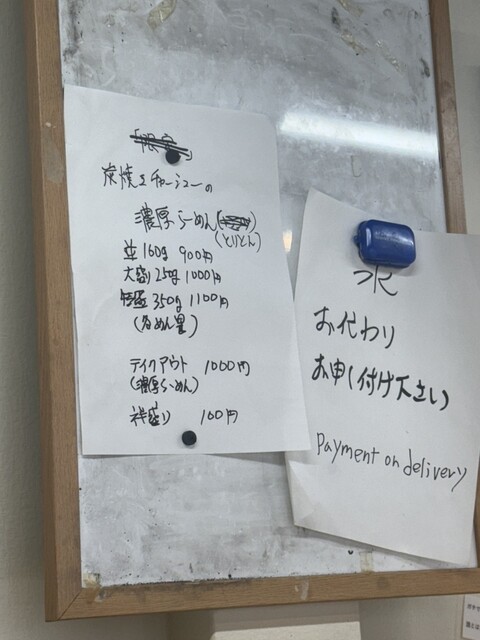 炭焼きチャーシューの
濃厚らーめん
(とりとん)
並160g 900円
大盛り250g 1000円
350g 1100円
テイクアウト 1000円
(濃厚らーめん)
盛り 100円
水
お代わり
お申し付け下さい
Payment on delivery